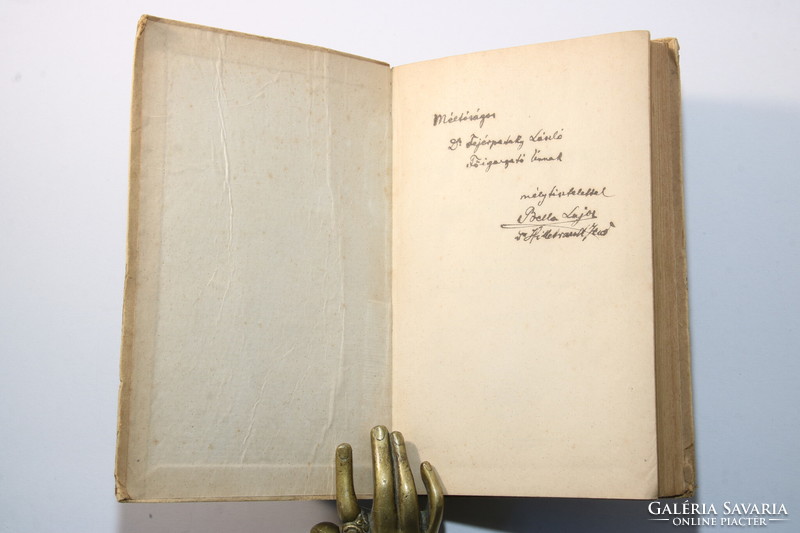 Méltóságos
Dr Fejérpataky László
Főigazgató Úrnak
mélytisztelettel
Bella Lajos
Dr Hillebrand Jenő
GALÉRIA SAVARIA
ONLINE PIACTÉR